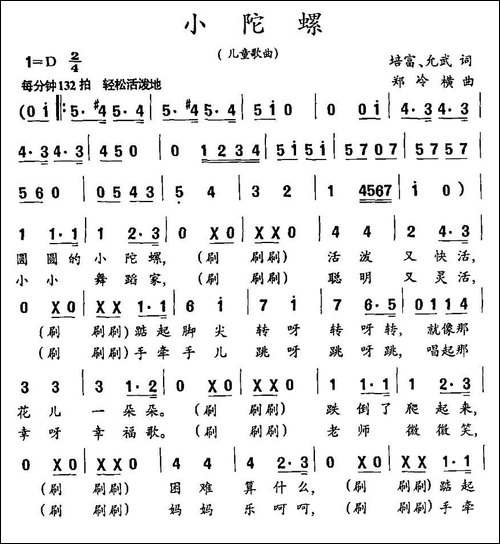 小 陀 螺
(儿童歌曲)
1=D 2/4
培富、允武 词
每分钟132拍 轻松活泼地
郑 冷 横 曲
(0 i ‖: 5· #4 | 5· #4 | 5· 4 5· 4 | 5 i 0 | 0 0 i | 4· 3 4· 3 |
4· 3 4· 3 | 4 5 0 | 0 1 2 3 4 | 5 i 5 i | 5 7 0 7 | 5 7 5 7 |
5 6 0 | 0 5 4 3 | 5 4 | 3 2 | 1 4567 | i 0) |
1 1· 1 | 1 2· 3 | 0 X 0 | X X X 0 | 4 4 | 2 4· 3 |
圆 圆 的 小 陀 螺, (刷 刷刷) 活 泼 又 快 活,
小 小 舞 蹈 家, (刷 刷刷) 聪 明 又 灵 活,
0 X 0 | X X 1· 1 | 6 i | 7 i | 7 6· 5 | 0 1 1 4 |
(刷 刷刷) 踮 起 脚 尖 转 呀 转 呀 转, 就 像 那
(刷 刷刷) 手 牵 手 儿 跳 呀 跳 呀 跳, 唱 起 那
3 3 | 3 1· 2 | 0 X 0 | X X X 0 | 1 1· 1 | 1 2· 3 |
花 儿 一 朵 朵。 (刷 刷刷) 跌 倒 了 爬 起 来,
幸 呀 幸 福 歌。 (刷 刷刷) 老 师 微 微 笑,
0 X 0 | X X X 0 | 4 4 | 4 2· 3 | 0 X 0 | X X 1· 1 |
(刷 刷刷) 困 难 算 什 么, (刷 刷刷) 踮 起
(刷 刷刷) 妈 妈 乐 呵 呵, (刷 刷刷) 手 牵